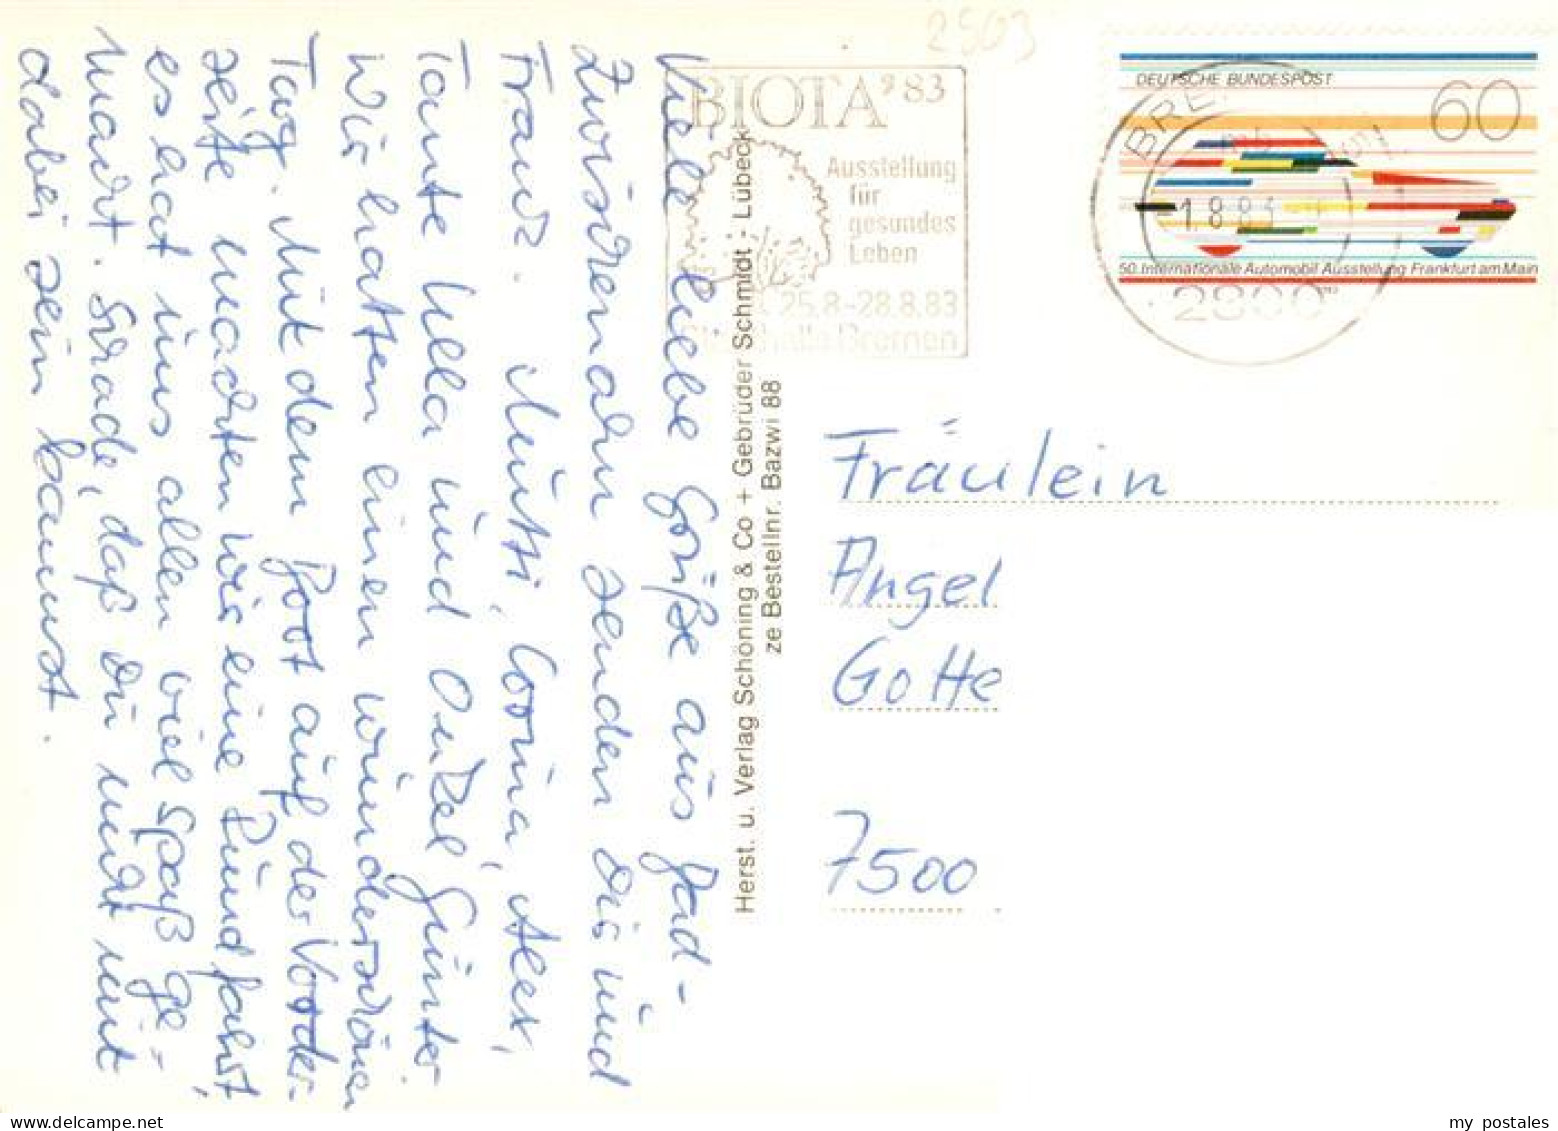 Viele liebe Grüße aus Bad-
Zwischenahn senden dir und
Franz. Mutti, Corina, Alex,
Tante Ulla und Onkel Günter
Wir hatten einen wunderschönen
Tag. Mit dem Boot auf der Vorder-
seite machten wir eine Rundfahrt,
es hat uns allen viel Spaß ge-
macht. Schade, daß du nicht mit
dabei sein kannst.
Herst. u. Verlag Schöning & Co + Gebrüder Schmidt - Lübeck
ze Bestellnr. Bazwi 88
2803
BIOTA '83
Ausstellung
für
gesundes
Leben
25.8-28.8.83
Stadthalle Bremen
DEUTSCHE BUNDESPOST
60
50. Internationale Automobil Ausstellung Frankfurt am Main
BRE
-1.8.83
2800
Fräulein
Angel
Gotte
7500
my postales